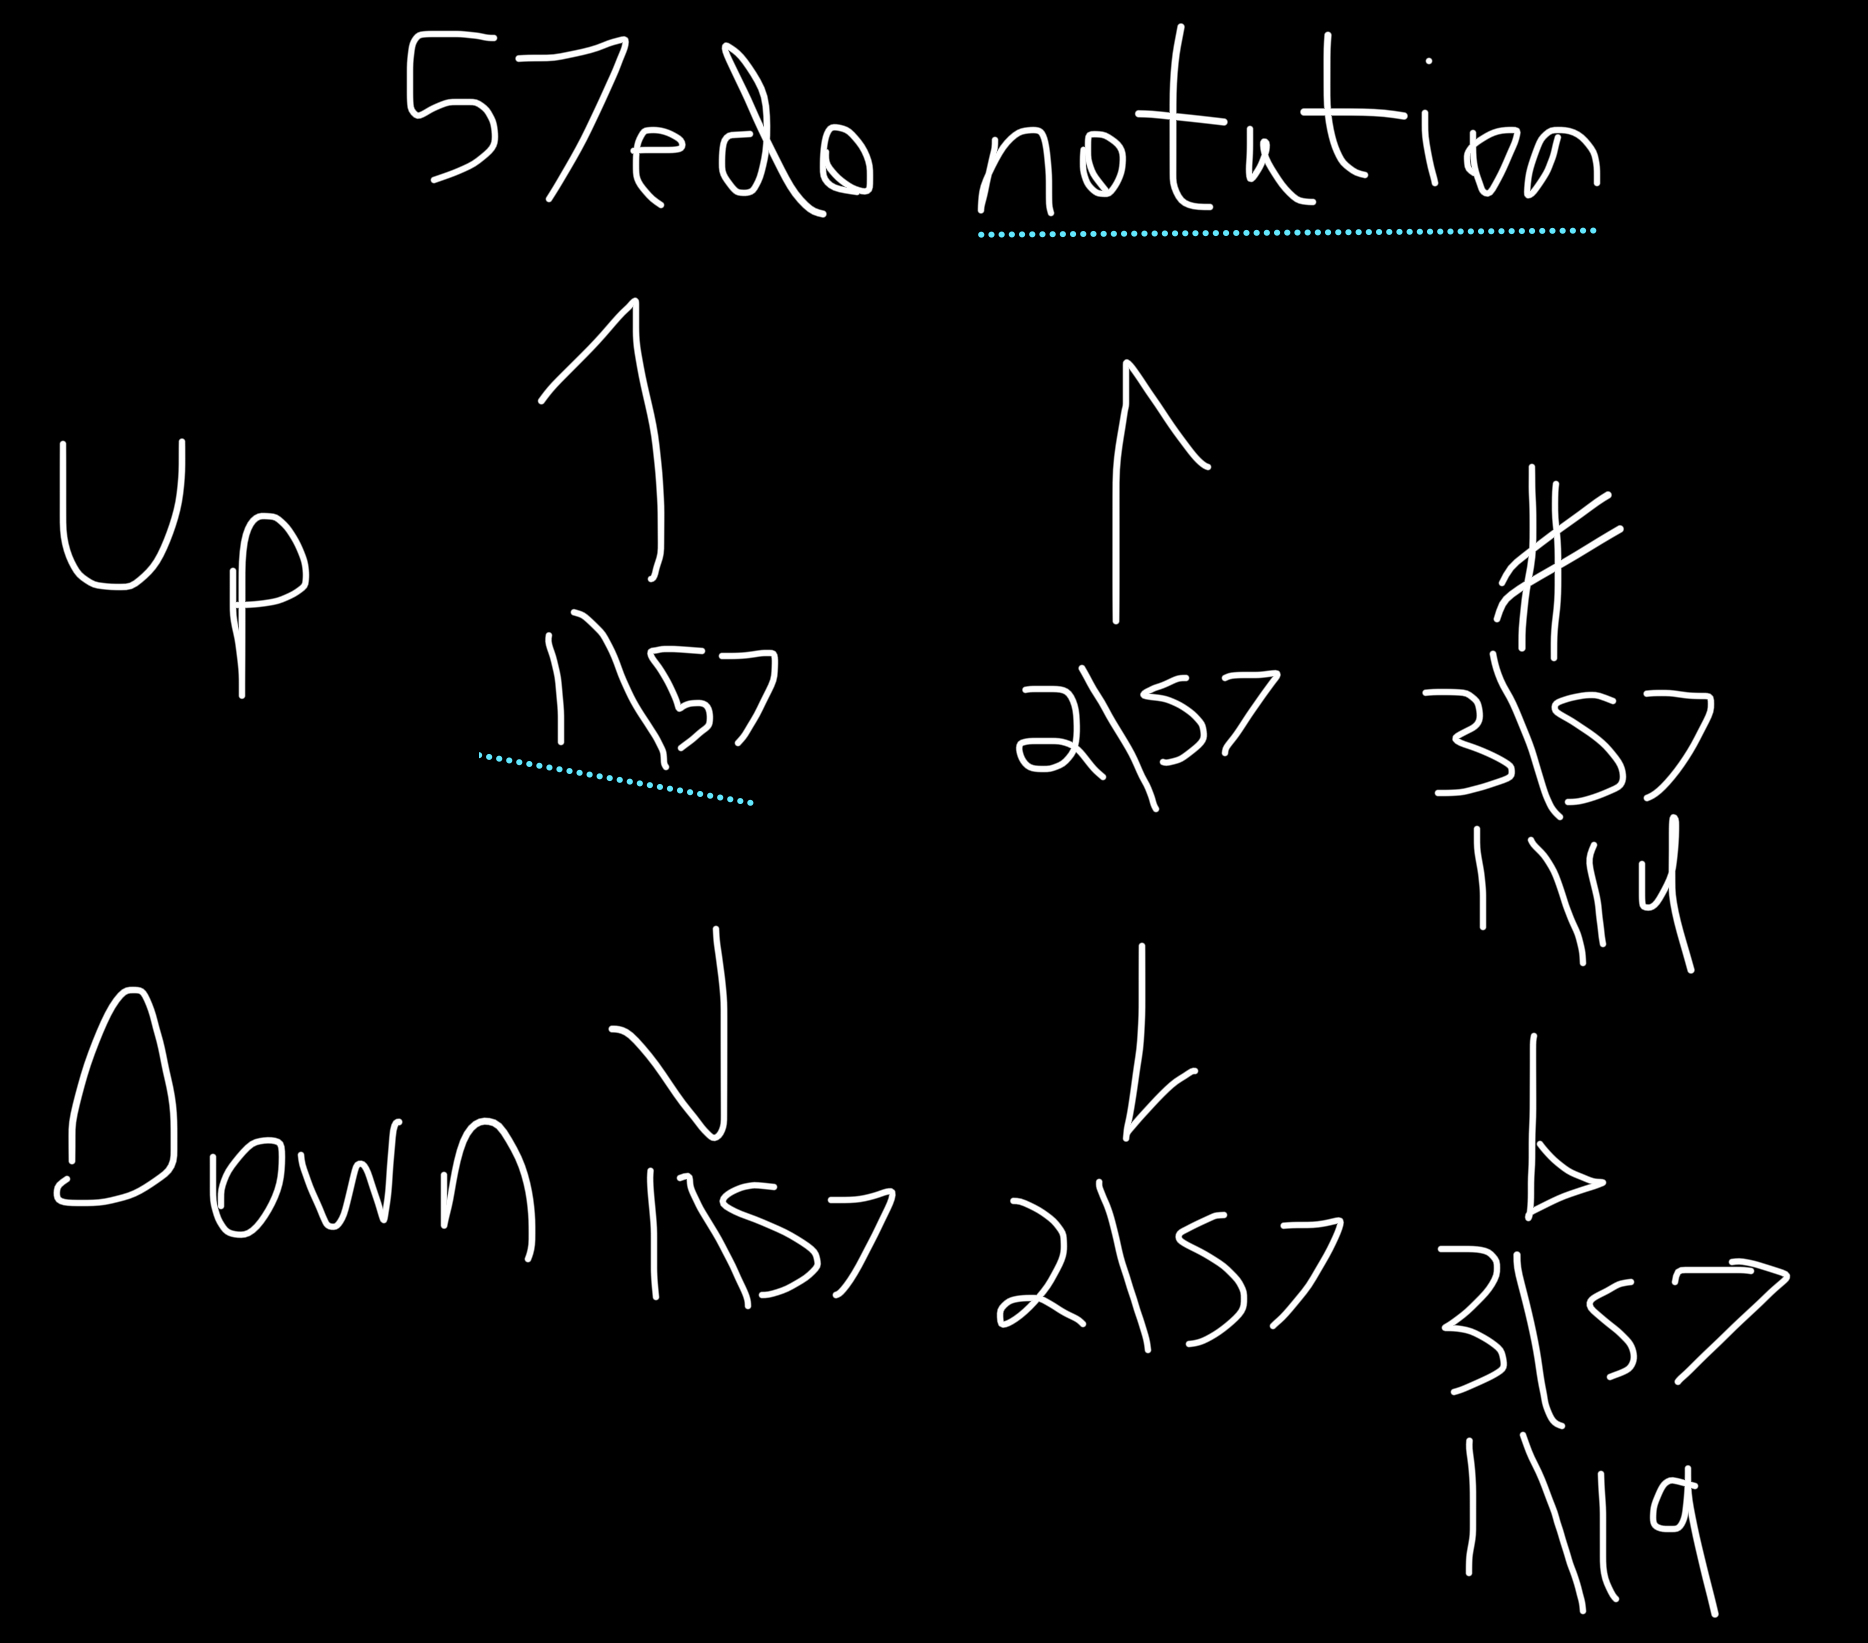 57edo notation
Up ↿ ↾ #
1\57 2\57 3\57
1\19
Down ⇃ ⇂ b
1\57 2\57 3\57
1\19